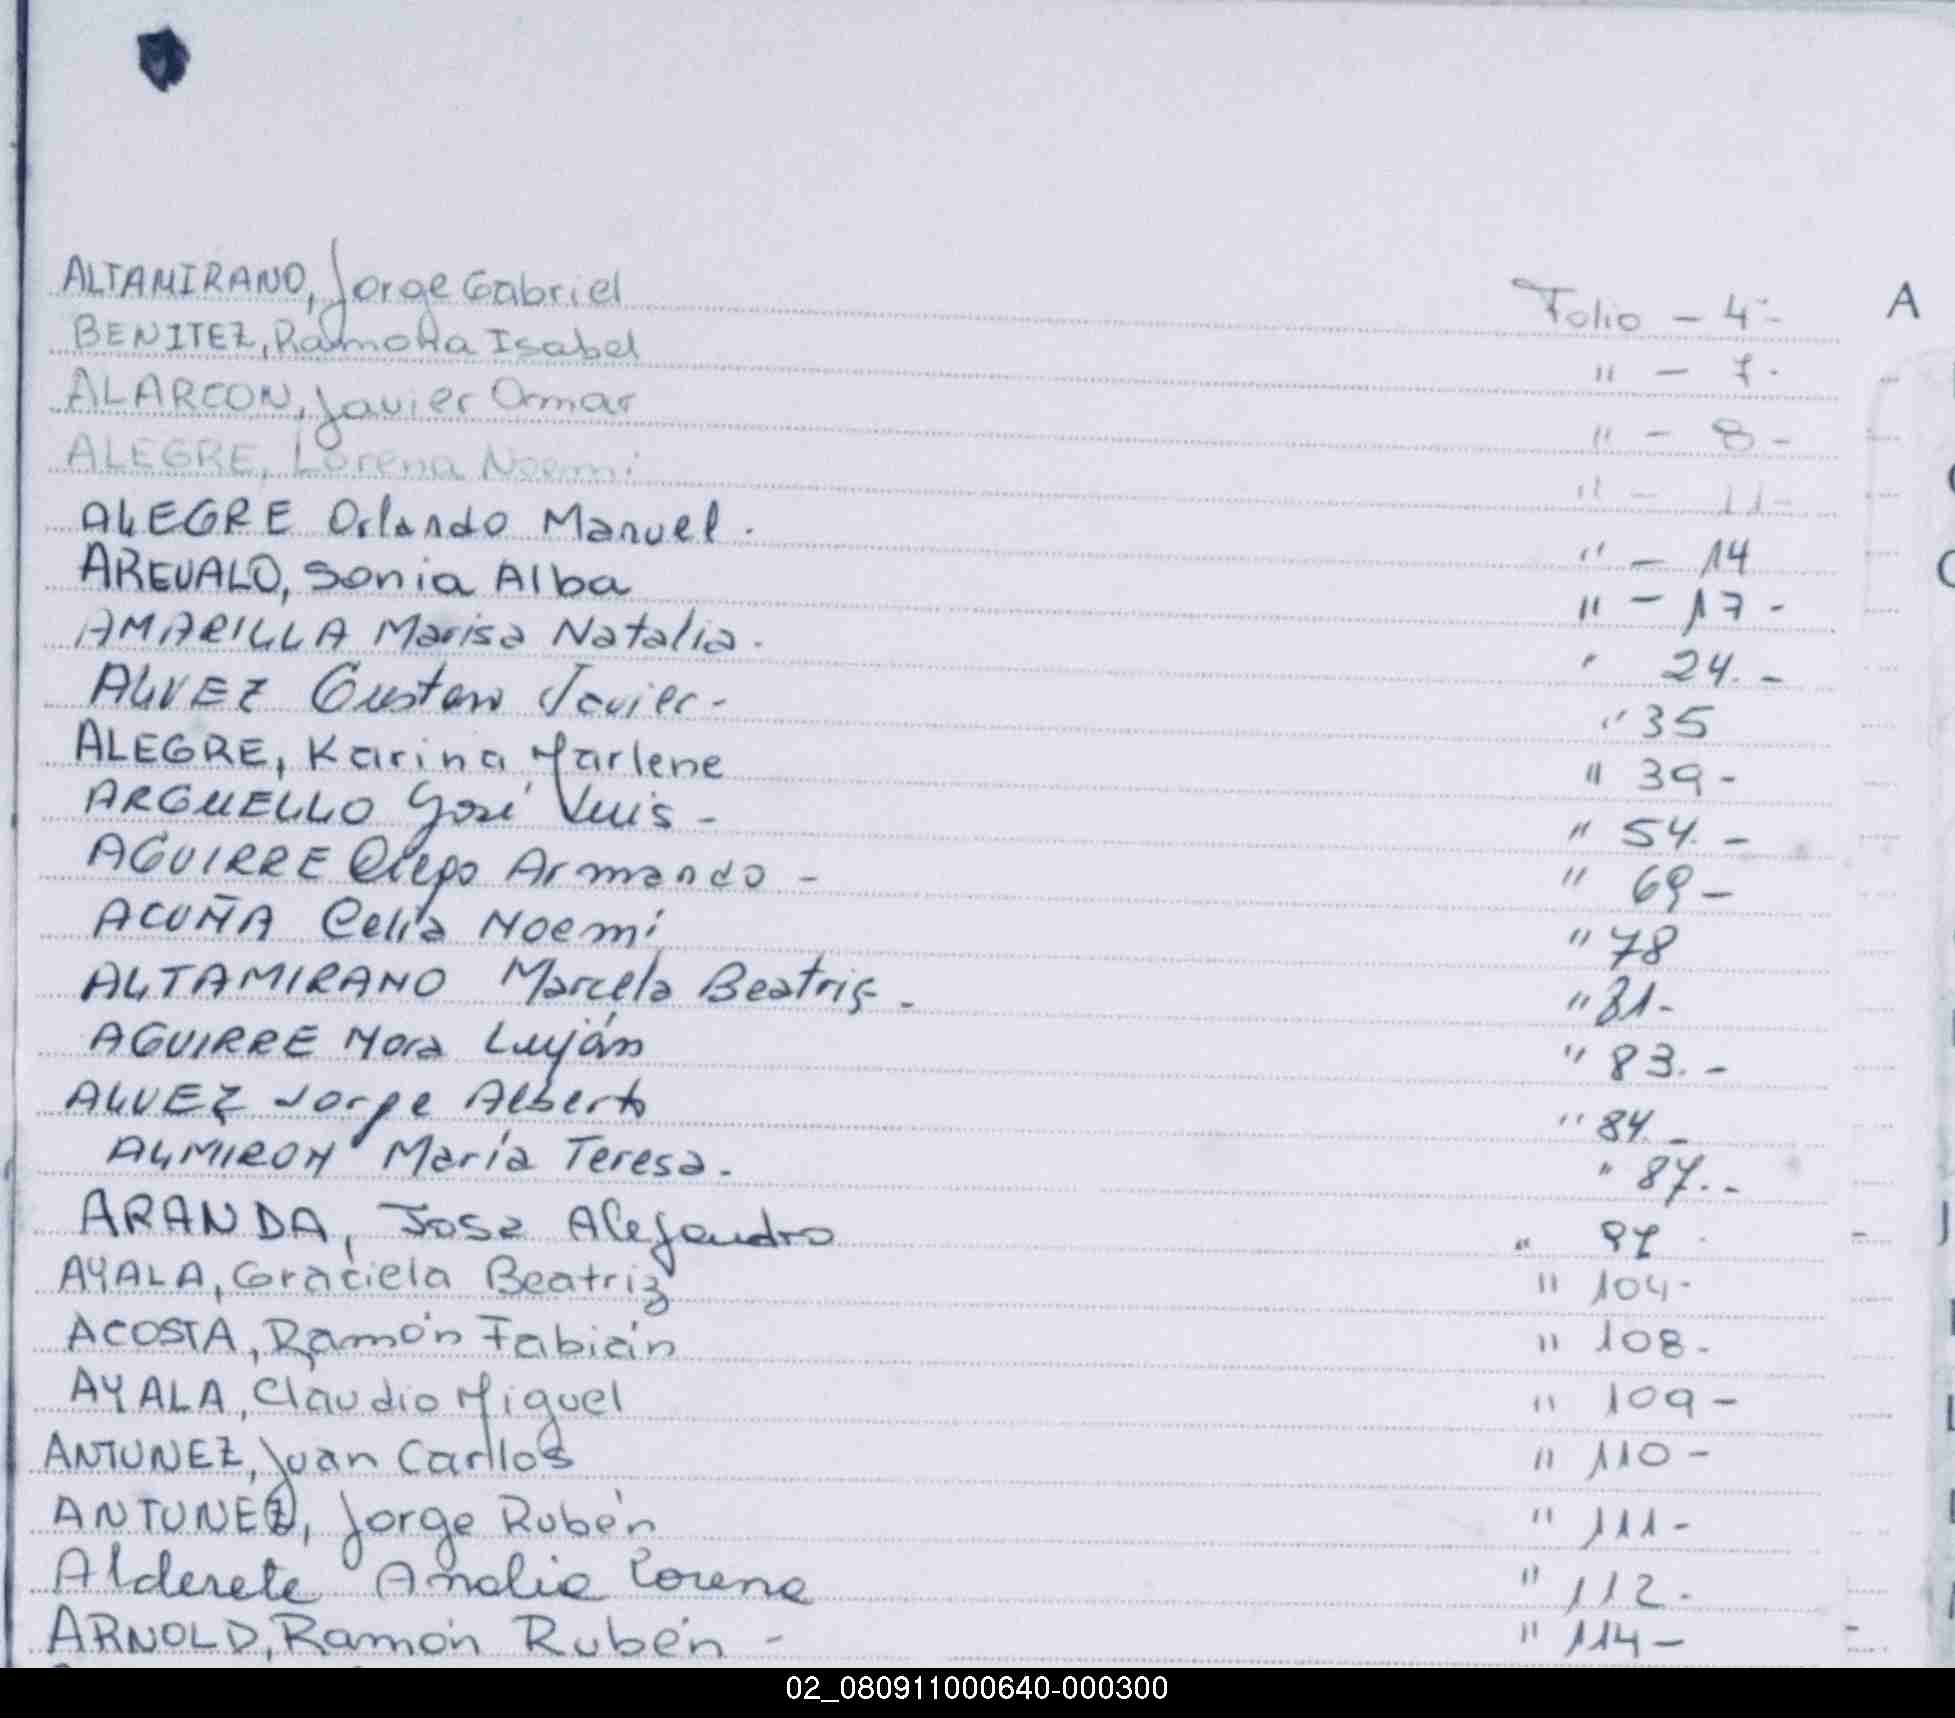 ALTAMIRANO, Jorge Gabriel Folio - 4 - A
BENITEZ, Ramona Isabel " - 7 -
ALARCON, Javier Omar " - 8 -
ALEGRE, Lorena Noemi " - 11 -
ALEGRE Orlando Manuel . " - 14
AREVALO, Sonia Alba " - 17 -
AMARILLA Marisa Natalia . " 24. -
ALVEZ Gustavo Javier - " 35
ALEGRE, Karina Marlene " 39 -
ARGUELLO José Luis - " 54. -
AGUIRRE Diego Armando - " 69 -
ACUÑA Celia Noemí " 78
ALTAMIRANO Marcela Beatriz - " 81 -
AGUIRRE Nora Luján " 83. -
ALVEZ Jorge Alberto " 84. -
ALMIRON María Teresa . " 87. -
ARANDA, Jose Alejandro " 97
AYALA, Graciela Beatriz " 104 -
ACOSTA, Ramón Fabián " 108 -
AYALA, Claudio Miguel " 109 -
ANTUNEZ, Juan Carllos " 110 -
ANTUNEZ, Jorge Rubén " 111 -
Alderete Analia Lorena " 112 -
ARNOLD, Ramón Rubén - " 114 -
02_080911000640-000300